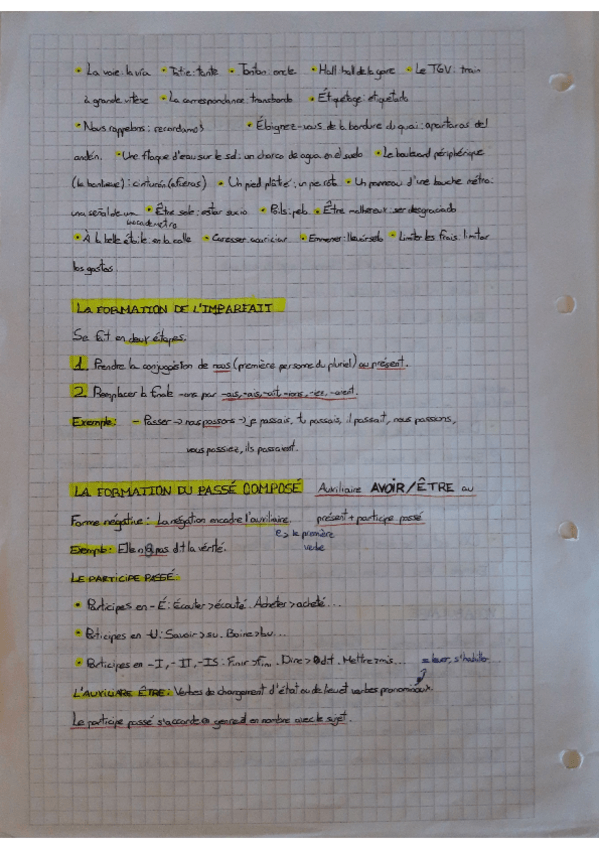 • La voie: la vía • Tatie: tante • Tonton: oncle • Hall: hall de la gare • Le TGV: train
à grande vitesse • La correspondance: transbordo • Étiquetage: etiquetado
• Nous rappelons: recordamos • Éloignez-vous de la bordure du quai: apartaros del
andén. • Une flaque d'eau sur le sol: un charco de agua en el suelo • Le boulevard périphérique
(la banlieue): cinturón (afueras) • Un pied plâtré: un pie roto • Un panneau d'une bouche métro:
una señal de un • Être sale: estar sucio • Poils: pelo • Être malheureux: ser desgraciado
boca de metro
• À la belle étoile: en la calle • Caresser: acariciar • Emmener: llevárselo • Limiter les frais: limitar
los gastos.
LA FORMATION DE L'IMPARFAIT
Se fait en deux étapes:
1. Prendre la conjugaison de nous (première personne du pluriel) au présent.
2. Remplacer la finale -ons par -ais, -ais, -ait, -ions, -iez, -aient.
Exemple: - Passer → nous passons → je passais, tu passais, il passait, nous passions,
vous passiez, ils passaient.
LA FORMATION DU PASSÉ COMPOSÉ Auxiliaire AVOIR/ÊTRE au
Forme négative: La négation encadre l'auxiliaire. présent + participe passé
↳ le première
verbe
Exemple: Elle n'a pas dit la vérité.
LE PARTICIPE PASSÉ:
• Participes en -É: Écouter > écouté. Acheter > acheté...
• Participes en -U: Savoir > su. Boire > bu...
• Participes en -I, -IT, -IS: Finir > fini. Dire > dit. Mettre > mis... se laver, s'habiller...
L'AUXILIARE ÊTRE: Verbes de changement d'état ou de lieu et verbes pronominaux.
Le participe passé s'accorde en genre et en nombre avec le sujet.